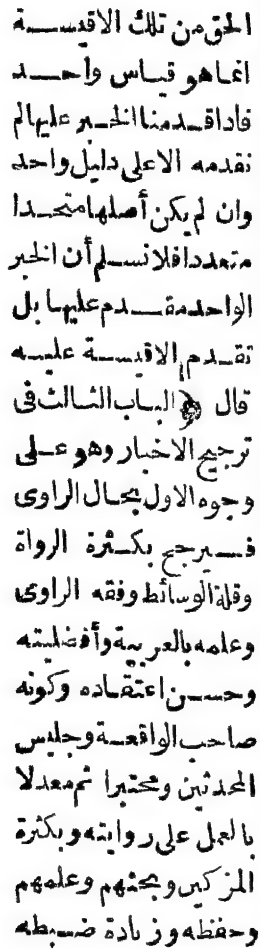 الحق من تلك الاقيسة
انما هو قياس واحد
فاذا قدمنا الخبر عليها لم
نقدمه الا على دليل واحد
وان لم يكن أصلها متحدا
متعددا فلا نسلم أن الخبر
الواحد مقدم عليها بل
تقدم الاقيسة عليه
قال ﴿الباب الثالث فى
ترجيح الاخبار وهو على
وجوه الاول بحال الراوى
فيرجح بكثرة الرواة
وقلة الوسائط وفقه الراوى
وعلمه بالعربية وأفضليته
وحسن اعتقاده وكونه
صاحب الواقعة وجليس
المحدثين ومختبرا ثم معدلا
بالعمل على روايته وبكثرة
المزكين وبحثهم وعلمهم
وحفظه وزيادة ضبطه